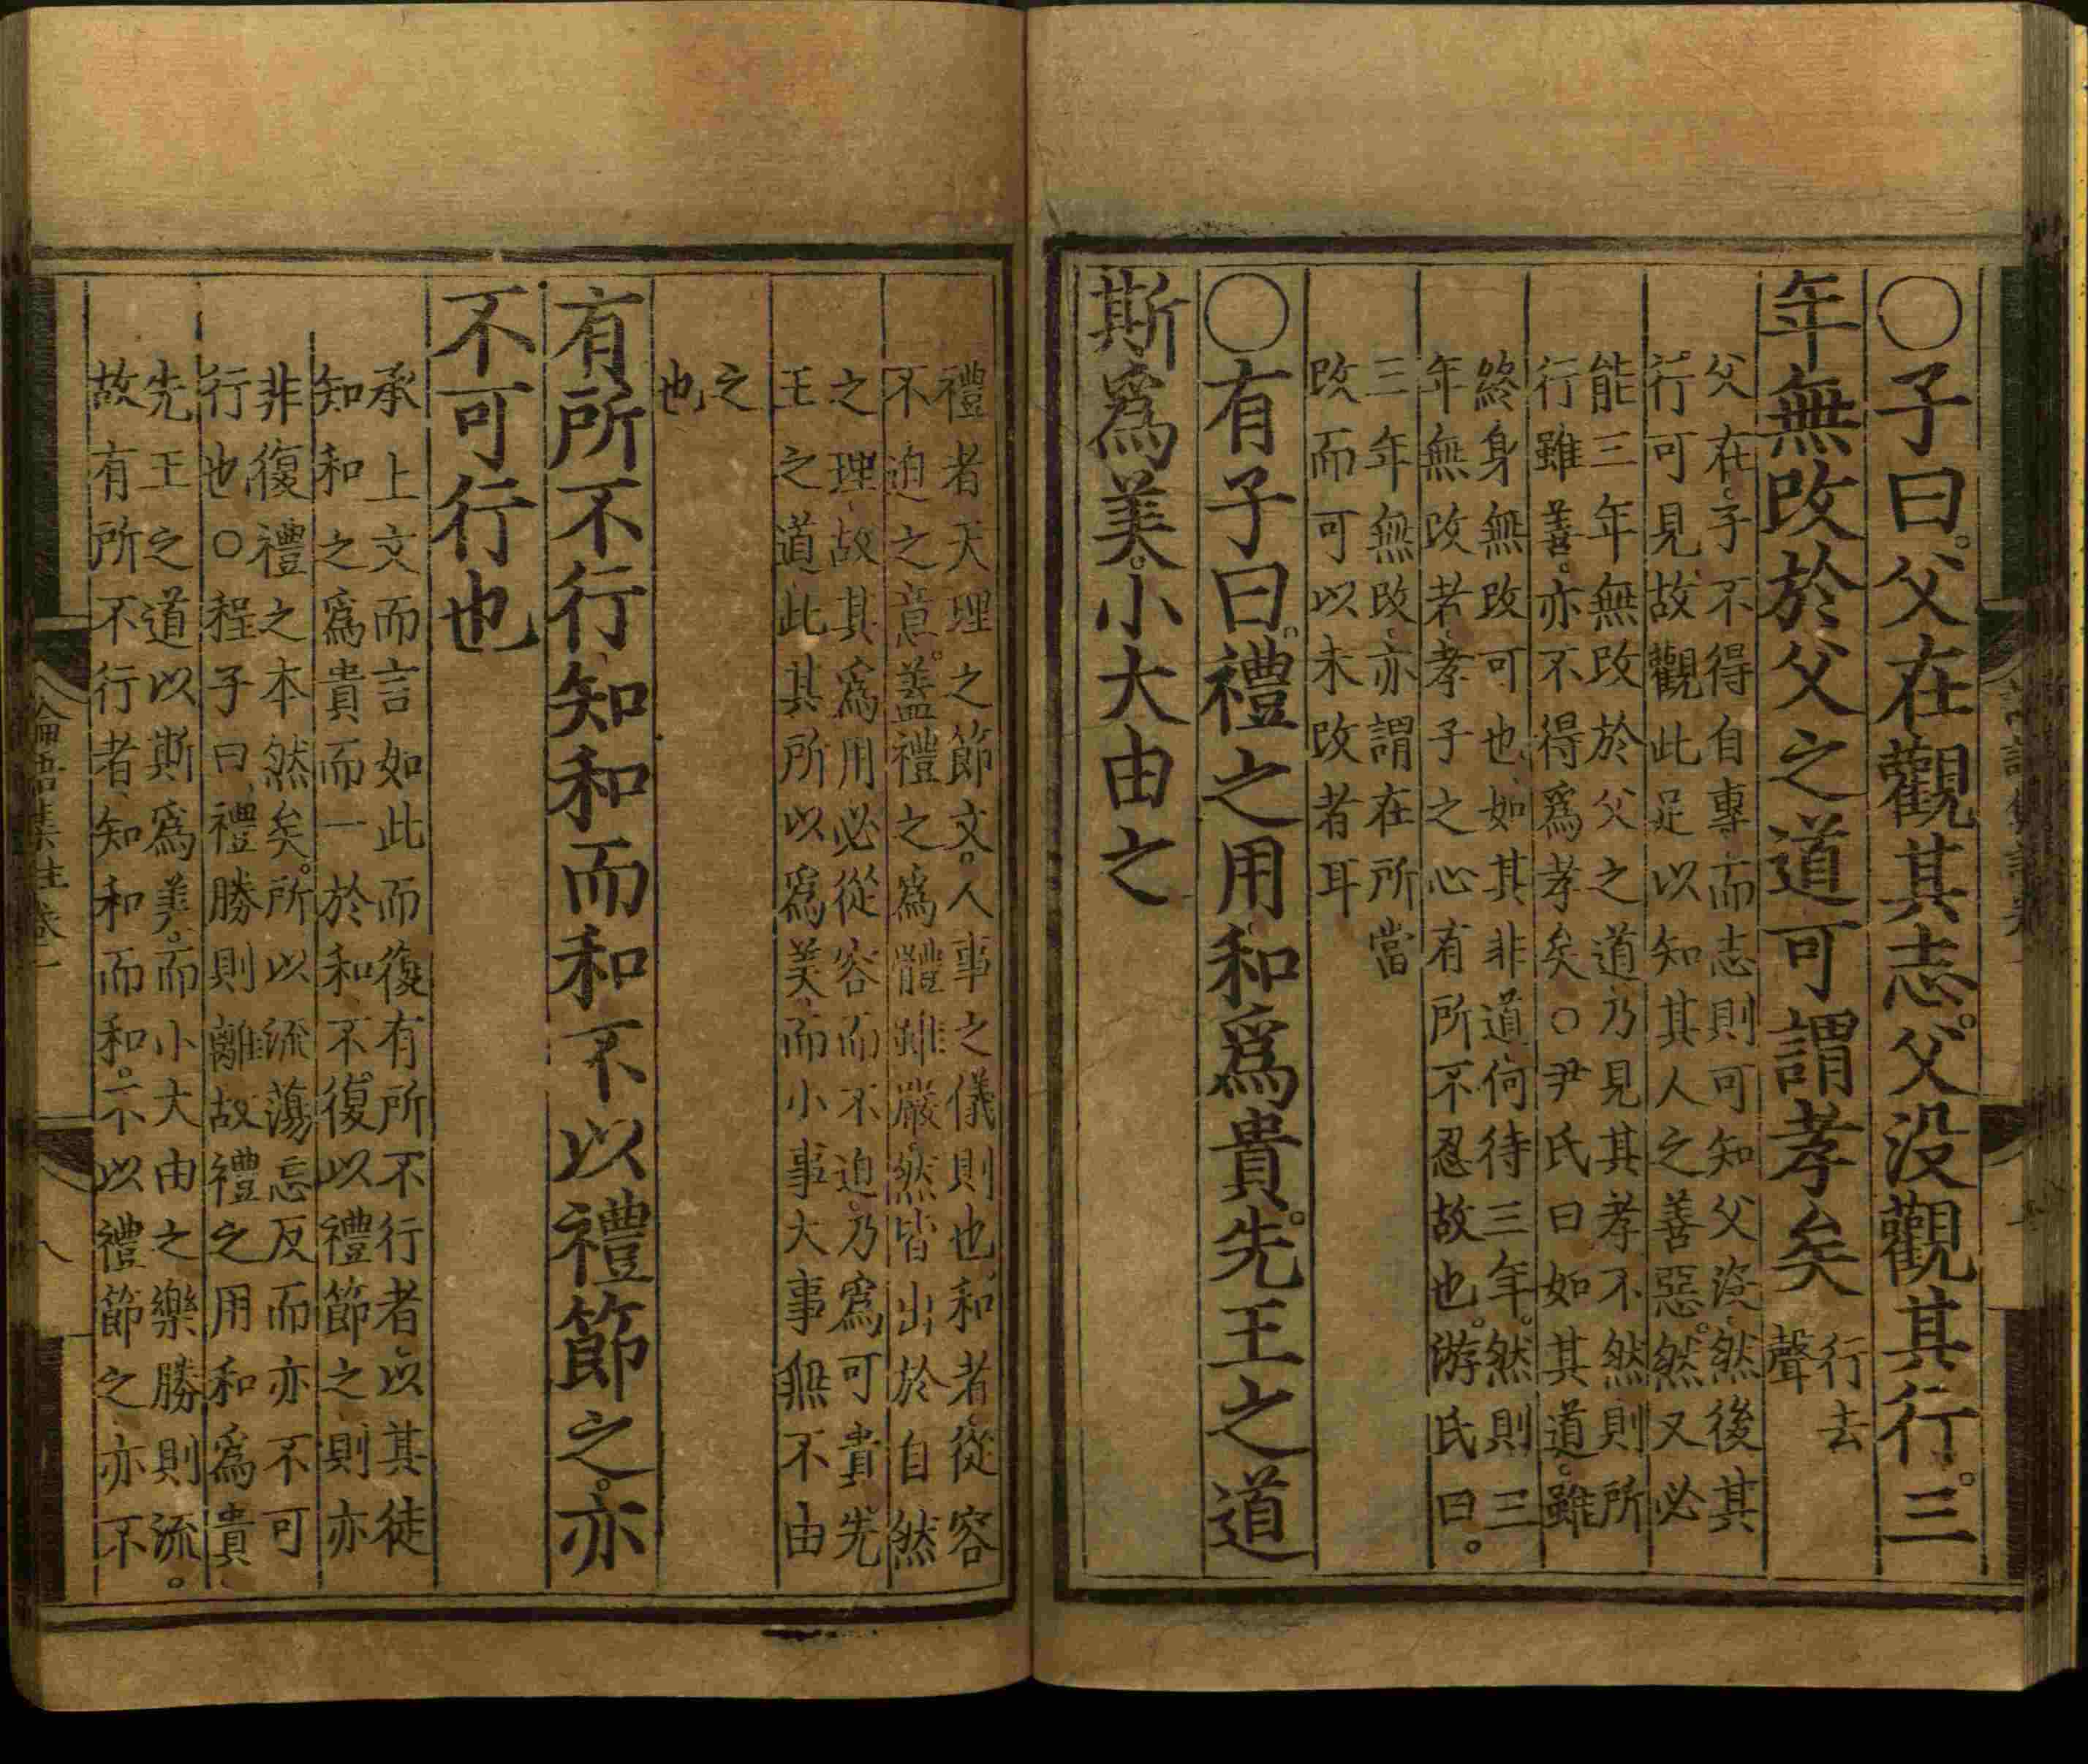 ○子曰。父在觀其志。父没觀其行。三
年無改於父之道可謂孝矣
行去
聲
父在。子不得自專而志則可知父沒。然後其
行可見。故觀此足以知其人之善惡。然又必
能三年無改於父之道。乃見其孝不然則所
行雖善。亦不得爲孝矣○尹氏曰如其道。雖
終身無改可也、如其非道。何待三年。然則三
年無改者。孝子之心有所不忍故也。游氏曰。
三年無改。亦謂在所當
改而可以未改者耳
○有子曰。禮之用和爲貴。先王之道
斯爲美。小大由之
禮者天理之節文。人事之儀則也、和者從容
不迫之意。蓋禮之爲體雖嚴。然皆出於自然
之理、故其爲用必從容而不迫。乃爲可貴先
王之道此其所以爲美、而小事大事無不由
之
也
有所不行、知和而和不以禮節之。亦
不可行也
承上文而言如此而復有所不行者。以其徒
知和之爲貴而一於和、不。復以禮節之、則亦
非復禮之本然矣。所以流蕩忘反而亦不可
行也○程子曰、禮勝則離故禮之用和爲貴、
先王之道以斯爲美。而小大由之樂勝則流。
故有所不行者、知和而和。不以禮節之亦不
論語集註卷一
八